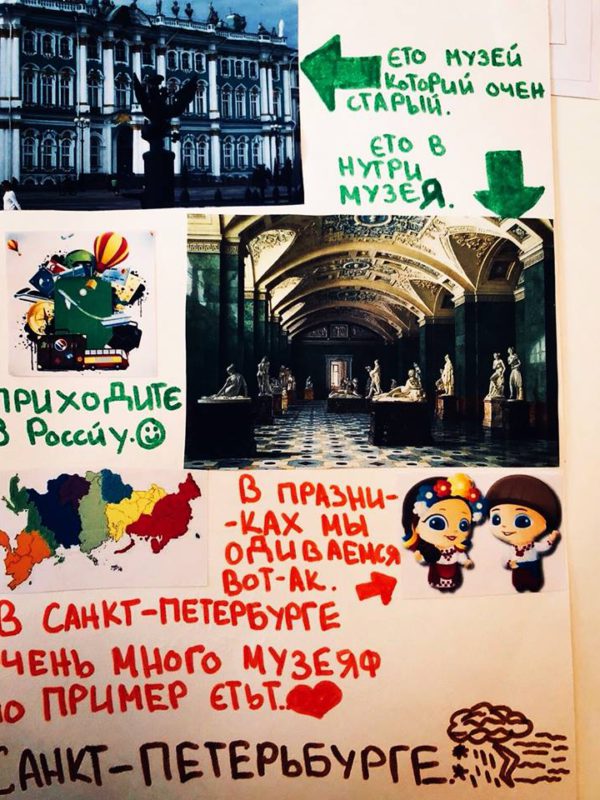 ЄТО МУЗЕЙ
КОТОРИЙ ОЧЕН
СТАРЫЙ.
ЄТО В
НУТРИ
МУЗЕЯ.
ПРИХОДИТЕ
В РОССИ́У.
В ПРАЗНИ-
-КАХ МЫ
ОДИВАЕМСЯ
ВОТ-АК.
В САНКТ-ПЕТЕРБУРГЕ
ЧЕНЬ МНОГО МУЗЕЯФ
ПО ПРИМЕР ЄТЬТ..
САНКТ-ПЕТЕРЬБУРГЕ.